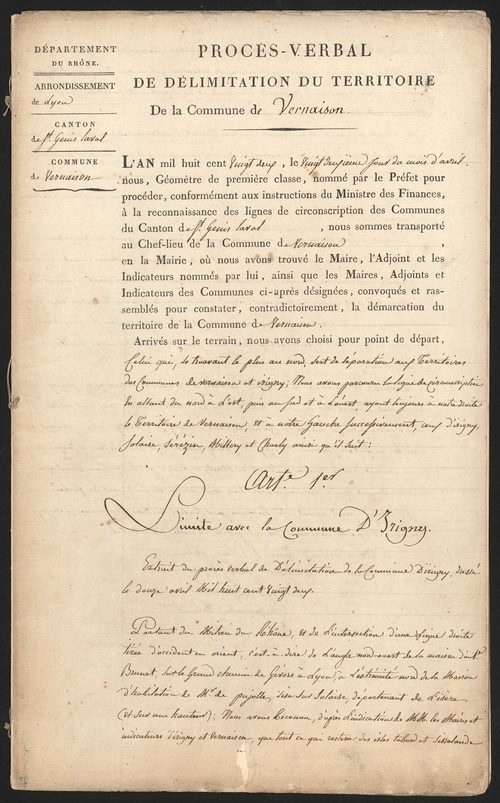 DÉPARTEMENT
DU RHÔNE.
ARRONDISSEMENT
de Lyon
CANTON
de St. Genis laval
COMMUNE
de Vernaison
PROCÈS-VERBAL
DE DÉLIMITATION DU TERRITOIRE
De la Commune de Vernaison.
L'AN mil huit cent vingt deux, le vingt deuxième jour du mois d'avril
nous, Géomètre de première classe, nommé par le Préfet pour
procéder, conformément aux instructions du Ministre des Finances,
à la reconnaissance des lignes de circonscription des Communes
du Canton de St. Genis laval , nous sommes transporté
au Chef-lieu de la Commune de Vernaison ,
en la Mairie, où nous avons trouvé le Maire, l'Adjoint et les
Indicateurs nommés par lui, ainsi que les Maires, Adjoints et
Indicateurs des Communes ci-après désignées, convoqués et ras-
semblés pour constater, contradictoirement, la démarcation du
territoire de la Commune de Vernaison.
Arrivés sur le terrain, nous avons choisi pour point de départ,
Celui qui, se trouvant le plus au nord, sert de séparation aux Territoires
des Communes de Vernaison et irigny; Nous avons parcouru la ligne de circonscription
en allant du nord à l'est, puis au Sud et à l'ouest, ayant toujours à notre droite
le Territoire de Vernaison, et à notre Gauche successivement, ceux d'irigny,
Solaise, Sérézin, Millery et Charly ainsi qu'il suit:
Arte. 1er.
Limite avec la Commune D'Irigny.
Extrait du procès verbal de Délimitation de la Commune D'irigny, dressé
le douze avril Mil huit cent vingt deux.
Partant du Milieu du Rhône, et de L'intersection d'une Ligne droite
tirée d'occident en orient, c'est-à-dire de L'angle nord-ouest de la maison
Brunet, sur le Grand chemin de Givors à Lyon, à L'extrémité nord de la Maison
d'habitation de Mr. de , sise sur Solaise, département de L'isère
(et sur une hauteur); Nous avons Reconnu, d'après L'indication de MM. les Maires et
indicateurs d'irigny et Vernaison, que tout ce qui restera des isles et